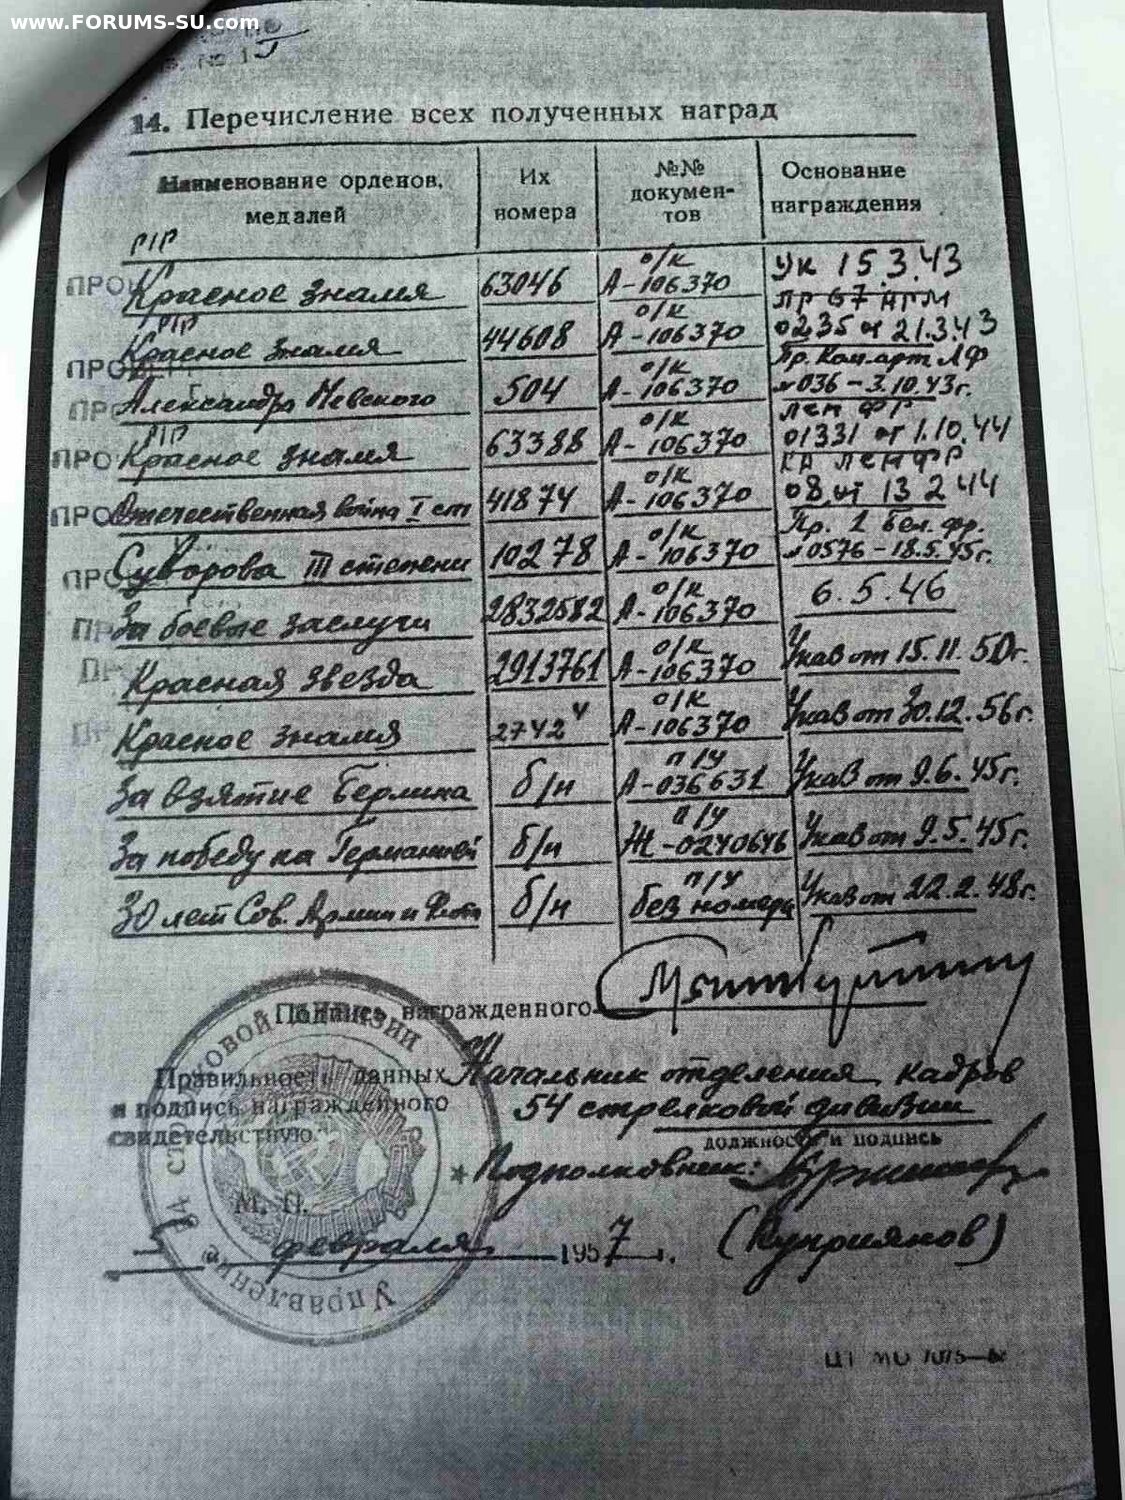 www.FORUMS-SU.com
14. Перечисление всех полученных наград
Наименование орденов, медалей
Их номера
№№ документов
Основание награждения
Р/Р о/к Ук 15.3.43
ПРО Красное знамя 63046 А-106370
Пр 67 Арм
Р/Р о/к 0235 от 21.3.43
ПРО Красное знамя 44608 А-106370
о/к Пр. Ком.арт. ЛФ
ПРО Александра Невского 504 А-106370 №036-3.10.43г.
Р/Р о/к Лен фр
ПРО Красное знамя 63388 А-106370 01331 от 1.10.44
о/к КА Ленфр
ПРО Отечественная война I ст 41874 А-106370 08 от 13 2 44
о/к Пр. 1 Бел. фр.
ПРО Суворова III степени 10278 А-106370 №0576-18.5.45г.
о/к
ПР За боевые заслуги 2832582 А-106370 6.5.46
о/к
ПР Красная звезда 2913761 А-106370 Указ от 15.11.50г.
о/к
ПР Красное знамя А-106370 Указ от 30.12.56г.
п/у
За взятие Берлина б/н А-036631 Указ от 9.6.45г.
п/у
За победу на Германией б/н Ж-0240646 Указ от 9.5.45г.
п/у
30 лет Сов. Армии и Флота б/н без номера Указ от 22.2.48г.
Подпись награжденного
Правильность данных
и подпись награжденного
свидетельствую.
Начальник отделения кадров
54 стрелковой дивизии
должность и подпись
Подполковник:
М. П.
февраля 1957 г. (Куприянов)
Управление 54 стрелковой дивизии